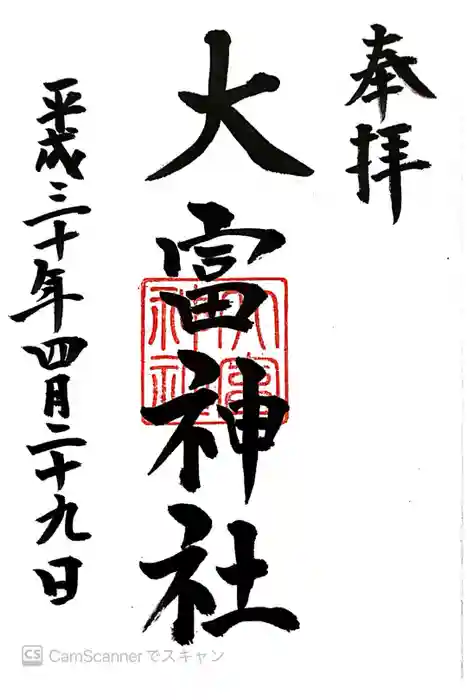 奉拝
大富神社
大富
神社
平成三十年四月二十九日
CS CamScannerでスキャン